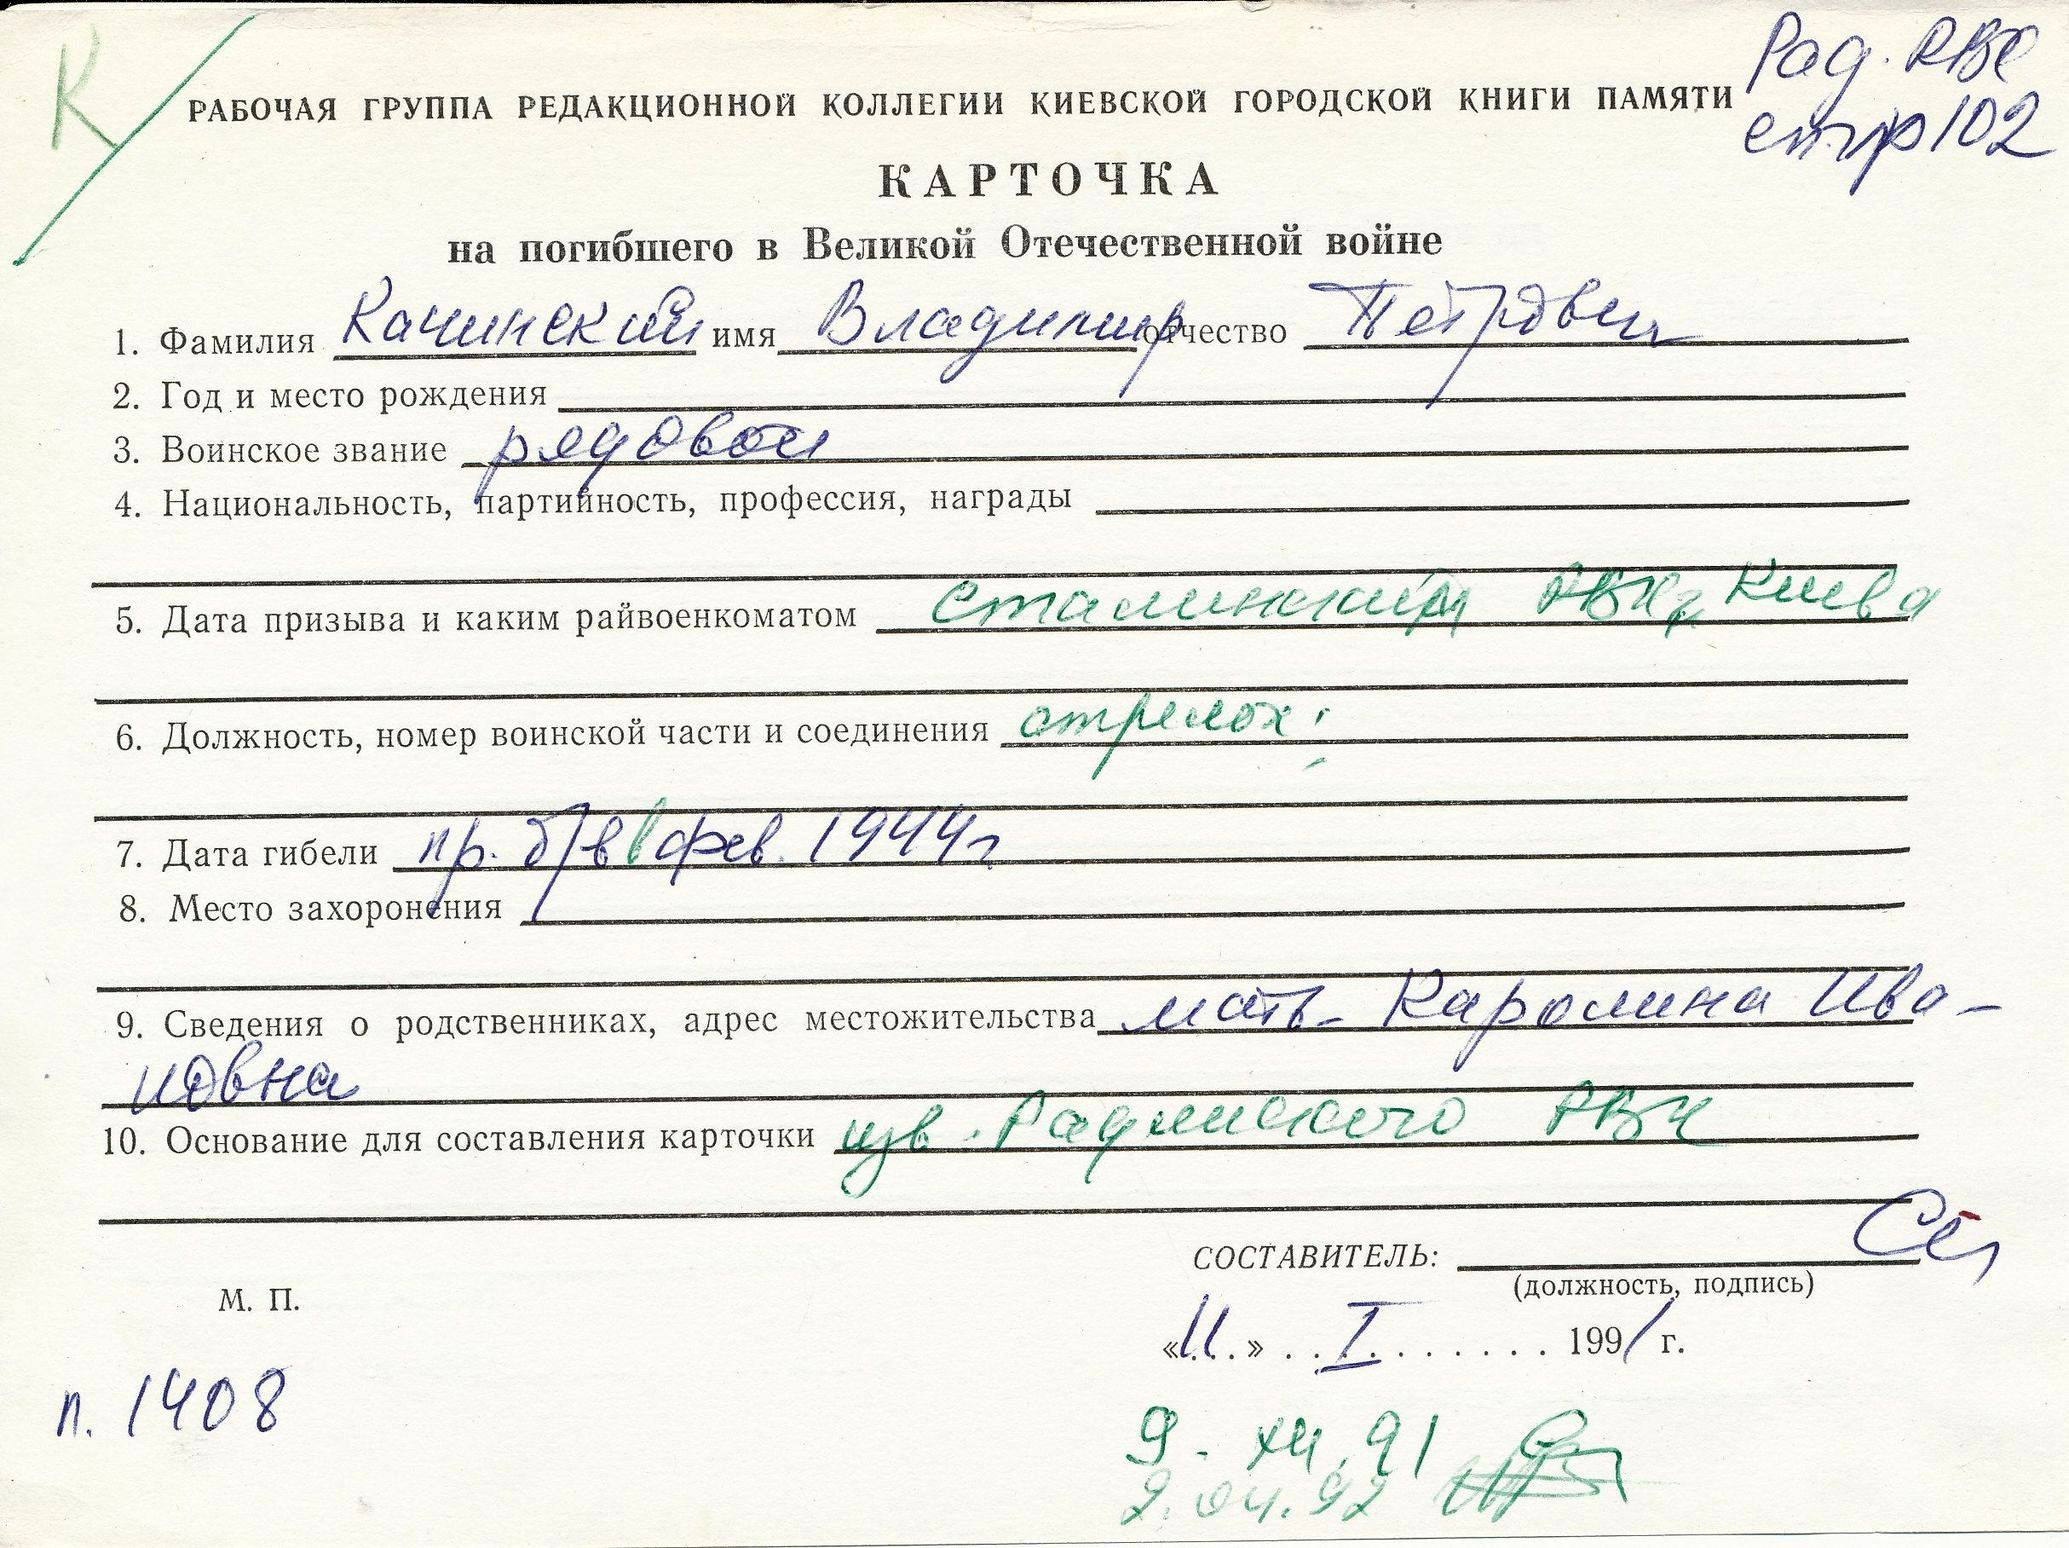 К
Рад. РВК
стр 102
РАБОЧАЯ ГРУППА РЕДАКЦИОННОЙ КОЛЛЕГИИ КИЕВСКОЙ ГОРОДСКОЙ КНИГИ ПАМЯТИ
КАРТОЧКА
на погибшего в Великой Отечественной войне
1. Фамилия Качинский имя Владимир отчество Петрович
2. Год и место рождения
3. Воинское звание рядовой
4. Национальность, партийность, профессия, награды
5. Дата призыва и каким райвоенкоматом Сталинским РВК г. Киева
6. Должность, номер воинской части и соединения стрелок
7. Дата гибели пр. б/в в фев. 1944 г
8. Место захоронения
9. Сведения о родственниках, адрес местожительства мать - Каролина Ива-
новна
10. Основание для составления карточки изв. Радянского РВК
СОСТАВИТЕЛЬ:
(должность, подпись)
М. П.
«11» I 1991 г.
п. 1408
9. XII. 91
2.04.92